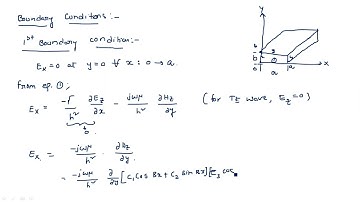 Boundary Conditions:-
1st Boundary condition:-
Ex = 0 at y = 0 ∀ x : 0 → a.
From eq ①;
Ex = -Γ/h² ∂Ez/∂x - jωμ/h² ∂Hz/∂y (for TE wave, Ez = 0)
0
Ex = -jωμ/h² · ∂Hz/∂y
= -jωμ/h² ∂/∂y [C₁ cos Bx + C₂ sin Bx] [C₃ cos
y
b
x
a
a